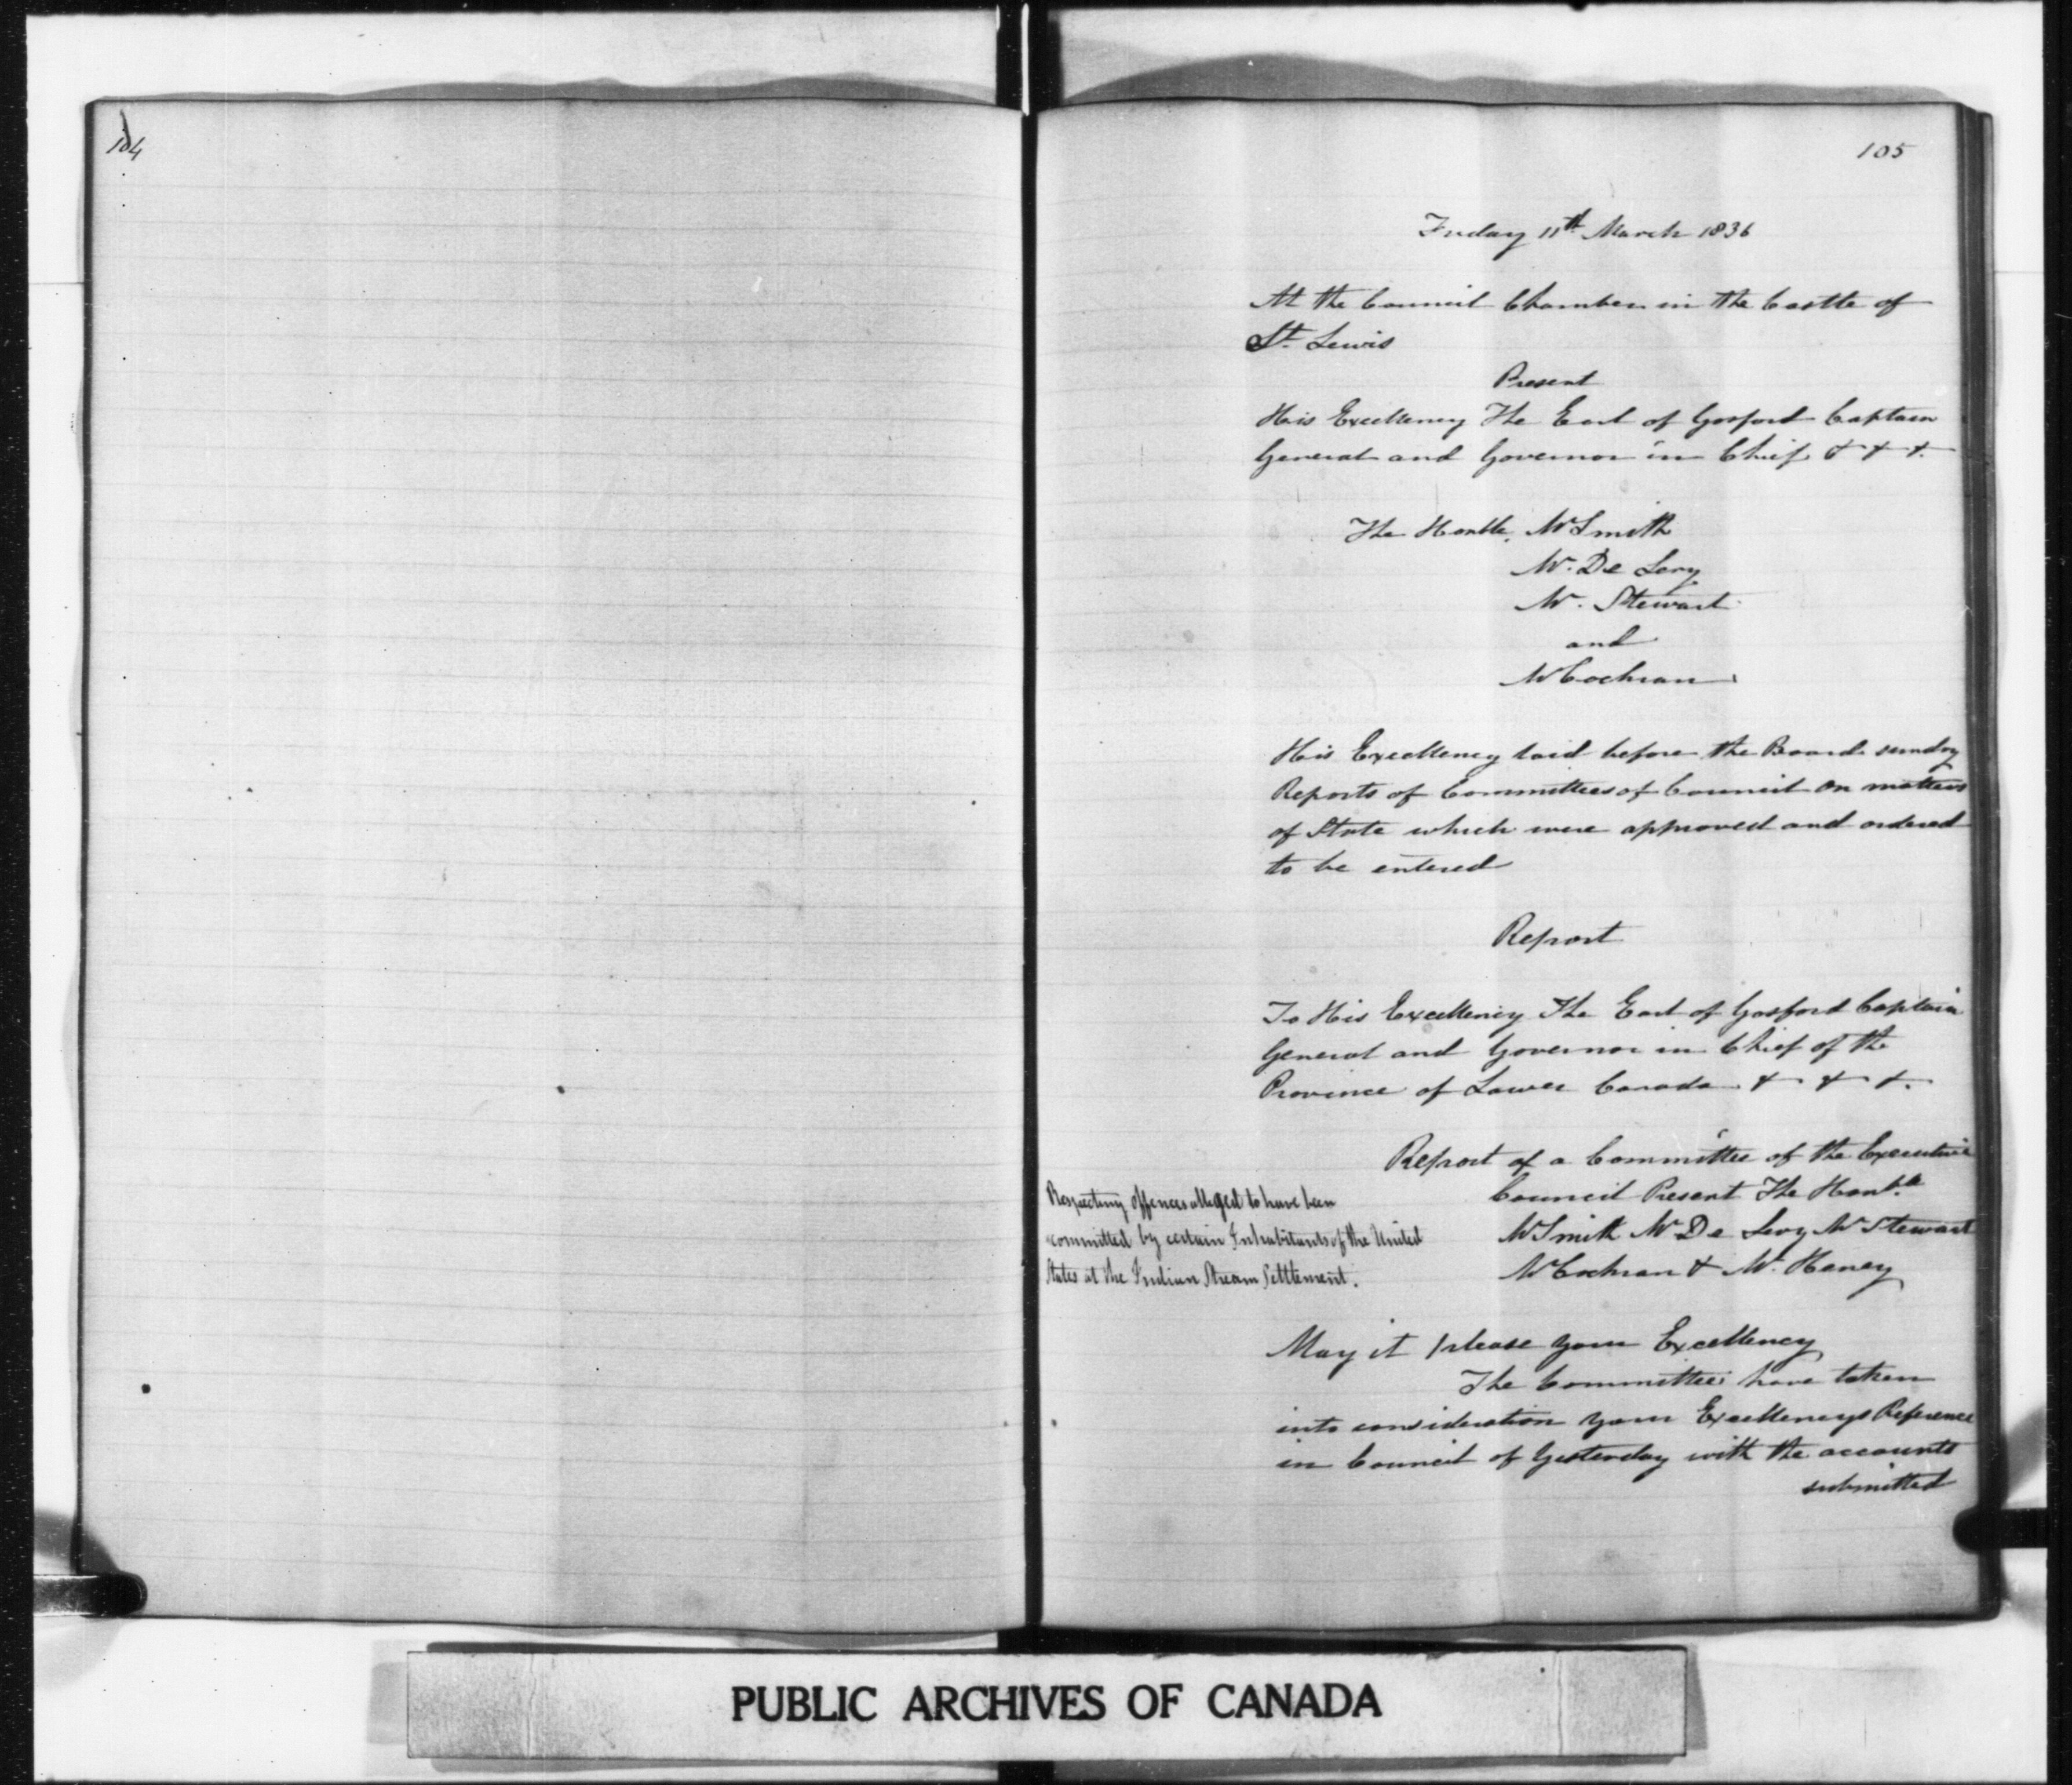 104
105
Friday 11th March 1836
At the Council Chamber in the Castle of
St. Lewis
Present
His Excellency The Earl of Gosford Captain
General and Governor in Chief & & &.
The Honble. Mr Smith
Mr. De Lery
Mr. Stewart
and
Mr Cochran
His Excellency laid before the Board sundry
Reports of Committees of Council on matters
of State which were approved and ordered
to be entered
Report
To His Excellency The Earl of Gosford Captain
General and Governor in Chief of the
Province of Lower Canada & & &.
Report of a Committee of the Executive
Council Present The Honble
Mr Smith Mr De Lery Mr Stewart
Mr Cochran & Mr. Heney
Respecting offences alleged to have been
committed by certain Inhabitants of the United
States at the Indian Stream Settlement.
May it please your Excellency
The Committee have taken
into consideration your Excellencys Reference
in Council of Yesterday with the accounts
submitted
PUBLIC ARCHIVES OF CANADA